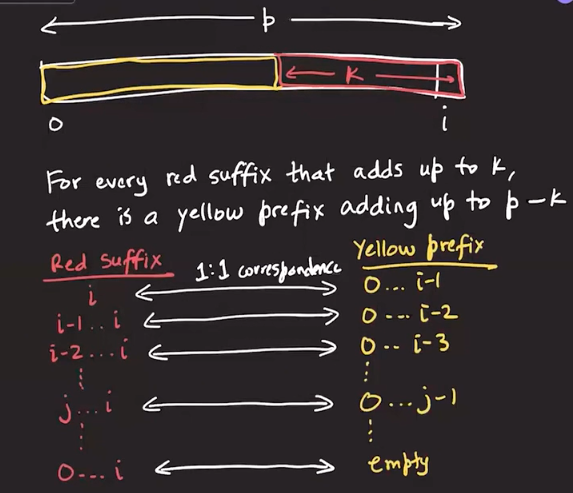 p
K
0
i
For every red suffix that adds up to K,
there is a yellow prefix adding up to p-k
Red suffix 1:1 correspondence Yellow prefix
i 0... i-1
i-1.. i 0--- i-2
i-2...i 0.. i-3
j...i 0...j-1
0---i empty